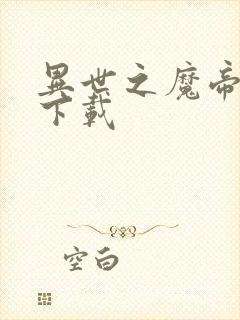 異世之魔帝
下載
空白